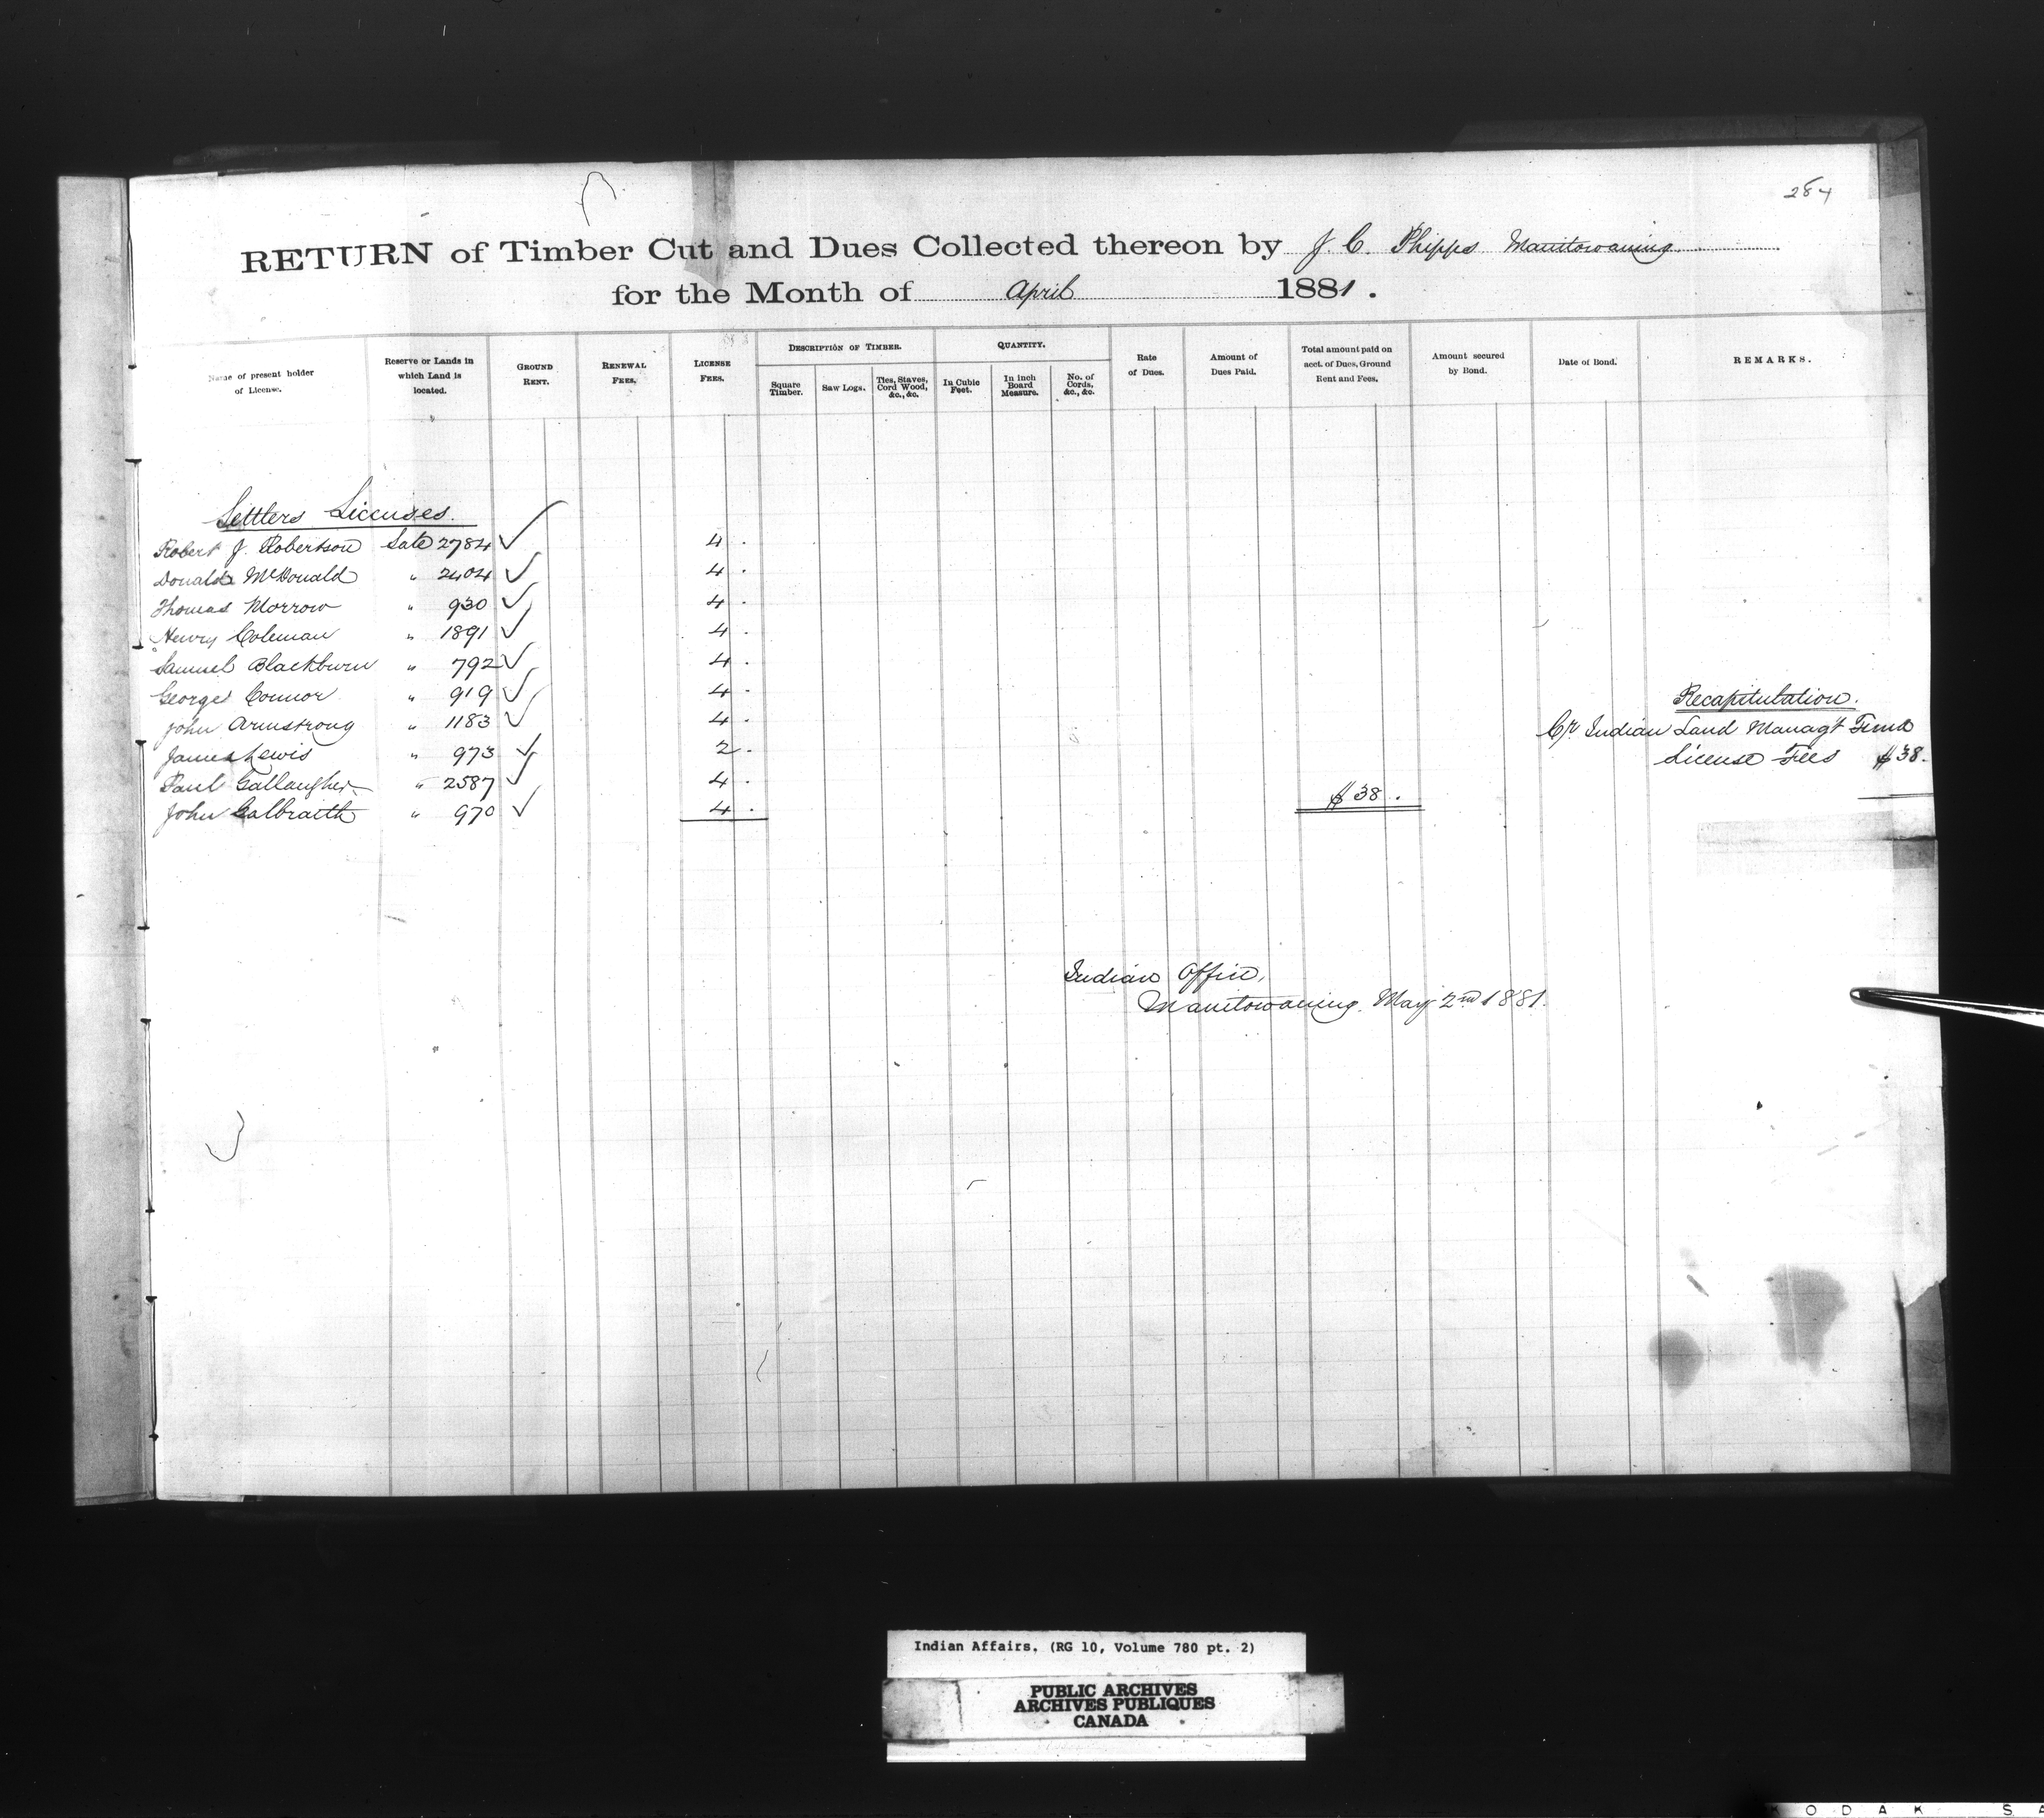 284
RETURN of Timber Cut and Dues Collected thereon by J. C. Phipps Manitowaning
for the Month of April 1881.
Name of present holder of License.
Reserve or Lands in which Land is located.
GROUND RENT.
RENEWAL FEES.
LICENSE FEES.
DESCRIPTION OF TIMBER.
Square Timber.
Saw Logs.
Ties, Staves, Cord Wood, &c., &c.
QUANTITY.
In Cubic Feet.
In inch Board Measure.
No. of Cords, &c., &c.
Rate of Dues.
Amount of Dues Paid.
Total amount paid on acct. of Dues, Ground Rent and Fees.
Amount secured by Bond.
Date of Bond.
REMARKS.
Settlers Licenses.
Robert J. Robertson Sale 2784 ✓ 4 .
Donald McDonald " 2404 ✓ 4 .
Thomas Morrow " 930 ✓ 4 .
Henry Coleman " 1891 ✓ 4 .
Samuel Blackburn " 792 ✓ 4 .
George Connor " 919 ✓ 4 .
John Armstrong " 1183 ✓ 4 .
James Lewis " 973 ✓ 2 .
Paul Gallaugher " 2587 ✓ 4 .
John Galbraith " 970 ✓ 4 .
$38.
Recapitulation.
Cr. Indian Land Managt Fund
License Fees $38.
Indian Office,
Manitowaning. May 2nd 1881.
Indian Affairs. (RG 10, Volume 780 pt. 2)
PUBLIC ARCHIVES
ARCHIVES PUBLIQUES
CANADA
KODAK S